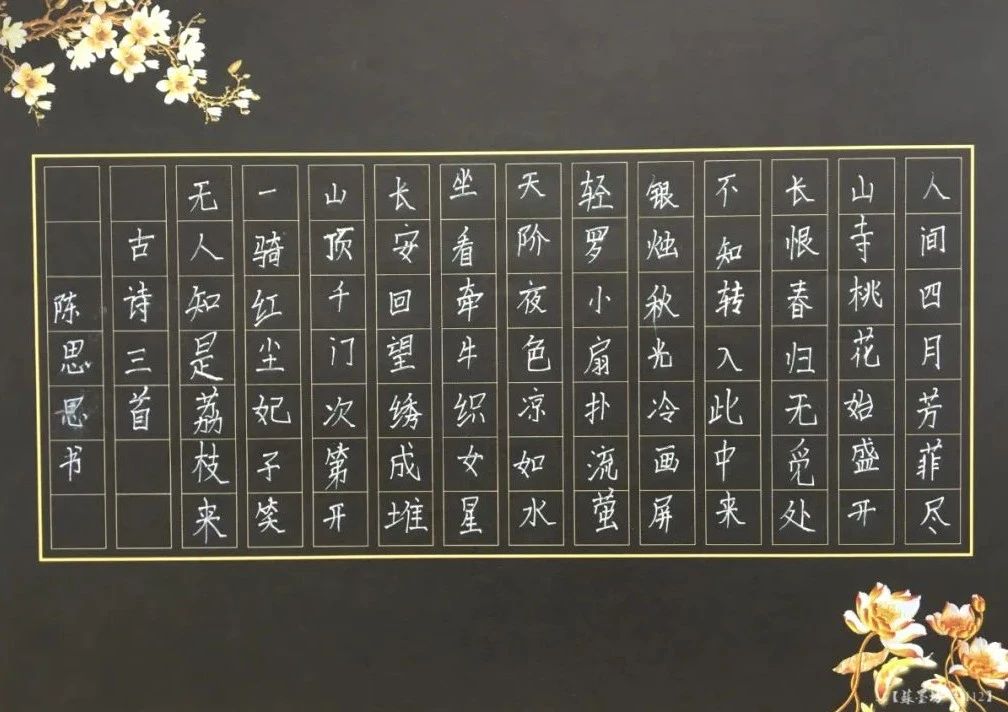 人间四月芳菲尽
山寺桃花始盛开
长恨春归无觅处
不知转入此中来
银烛秋光冷画屏
轻罗小扇扑流萤
天阶夜色凉如水
坐看牵牛织女星
长安回望绣成堆
山顶千门次第开
一骑红尘妃子笑
无人知是荔枝来
古诗三首
陈思思书